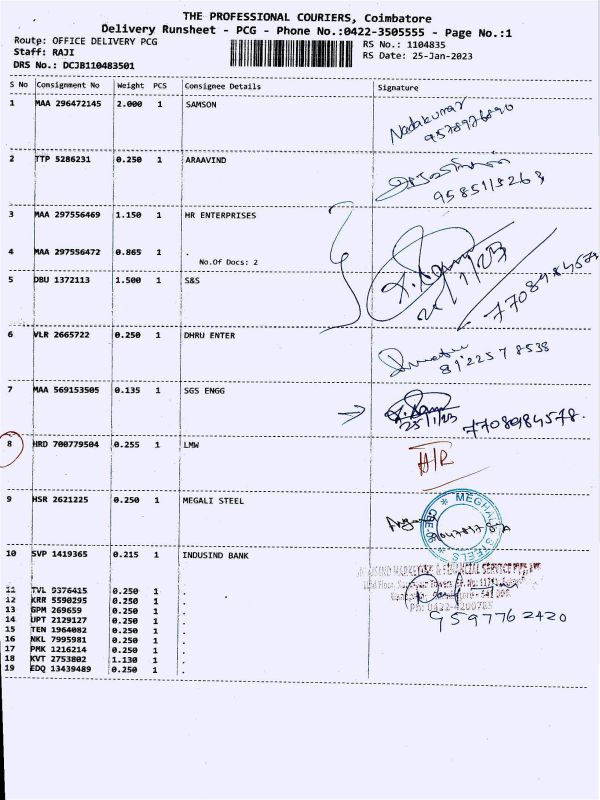 THE PROFESSIONAL COURIERS, Coimbatore
Delivery Runsheet - PCG - Phone No.:0422-3505555 - Page No.:1
Route: OFFICE DELIVERY PCG RS No.: 1104835
Staff: RAJI RS Date: 25-Jan-2023
DRS No.: DCJB110483501
S No Consignment No Weight PCS Consignee Details Signature
1 MAA 296472145 2.000 1 SAMSON
Nadakumar
9578976890
2 TTP 5286231 0.250 1 ARAAVIND
9585115263
3 MAA 297556469 1.150 1 HR ENTERPRISES
4 MAA 297556472 0.865 1 .
No.Of Docs: 2
7708984578
5 DBU 1372113 1.500 1 S&S
6 VLR 2665722 0.250 1 DHRU ENTER
8122578538
7 MAA 569153505 0.135 1 SGS ENGG
25/1/23 7708984578.
8 HRD 700779504 0.255 1 LMW
H/R
9 HSR 2621225 0.250 1 MEGALI STEEL
MEGHALI STEELS
10 SVP 1419365 0.215 1 INDUSIND BANK
Ph: 0422-4200785
9597762420
11 TVL 9376415 0.250 1 .
12 KRR 5590295 0.250 1 .
13 GPM 269659 0.250 1 .
14 UPT 2129127 0.250 1 .
15 TEN 1964082 0.250 1 .
16 NKL 7995981 0.250 1 .
17 PMK 1216214 0.250 1 .
18 KVT 2753802 1.130 1 .
19 EDQ 13439489 0.250 1 .